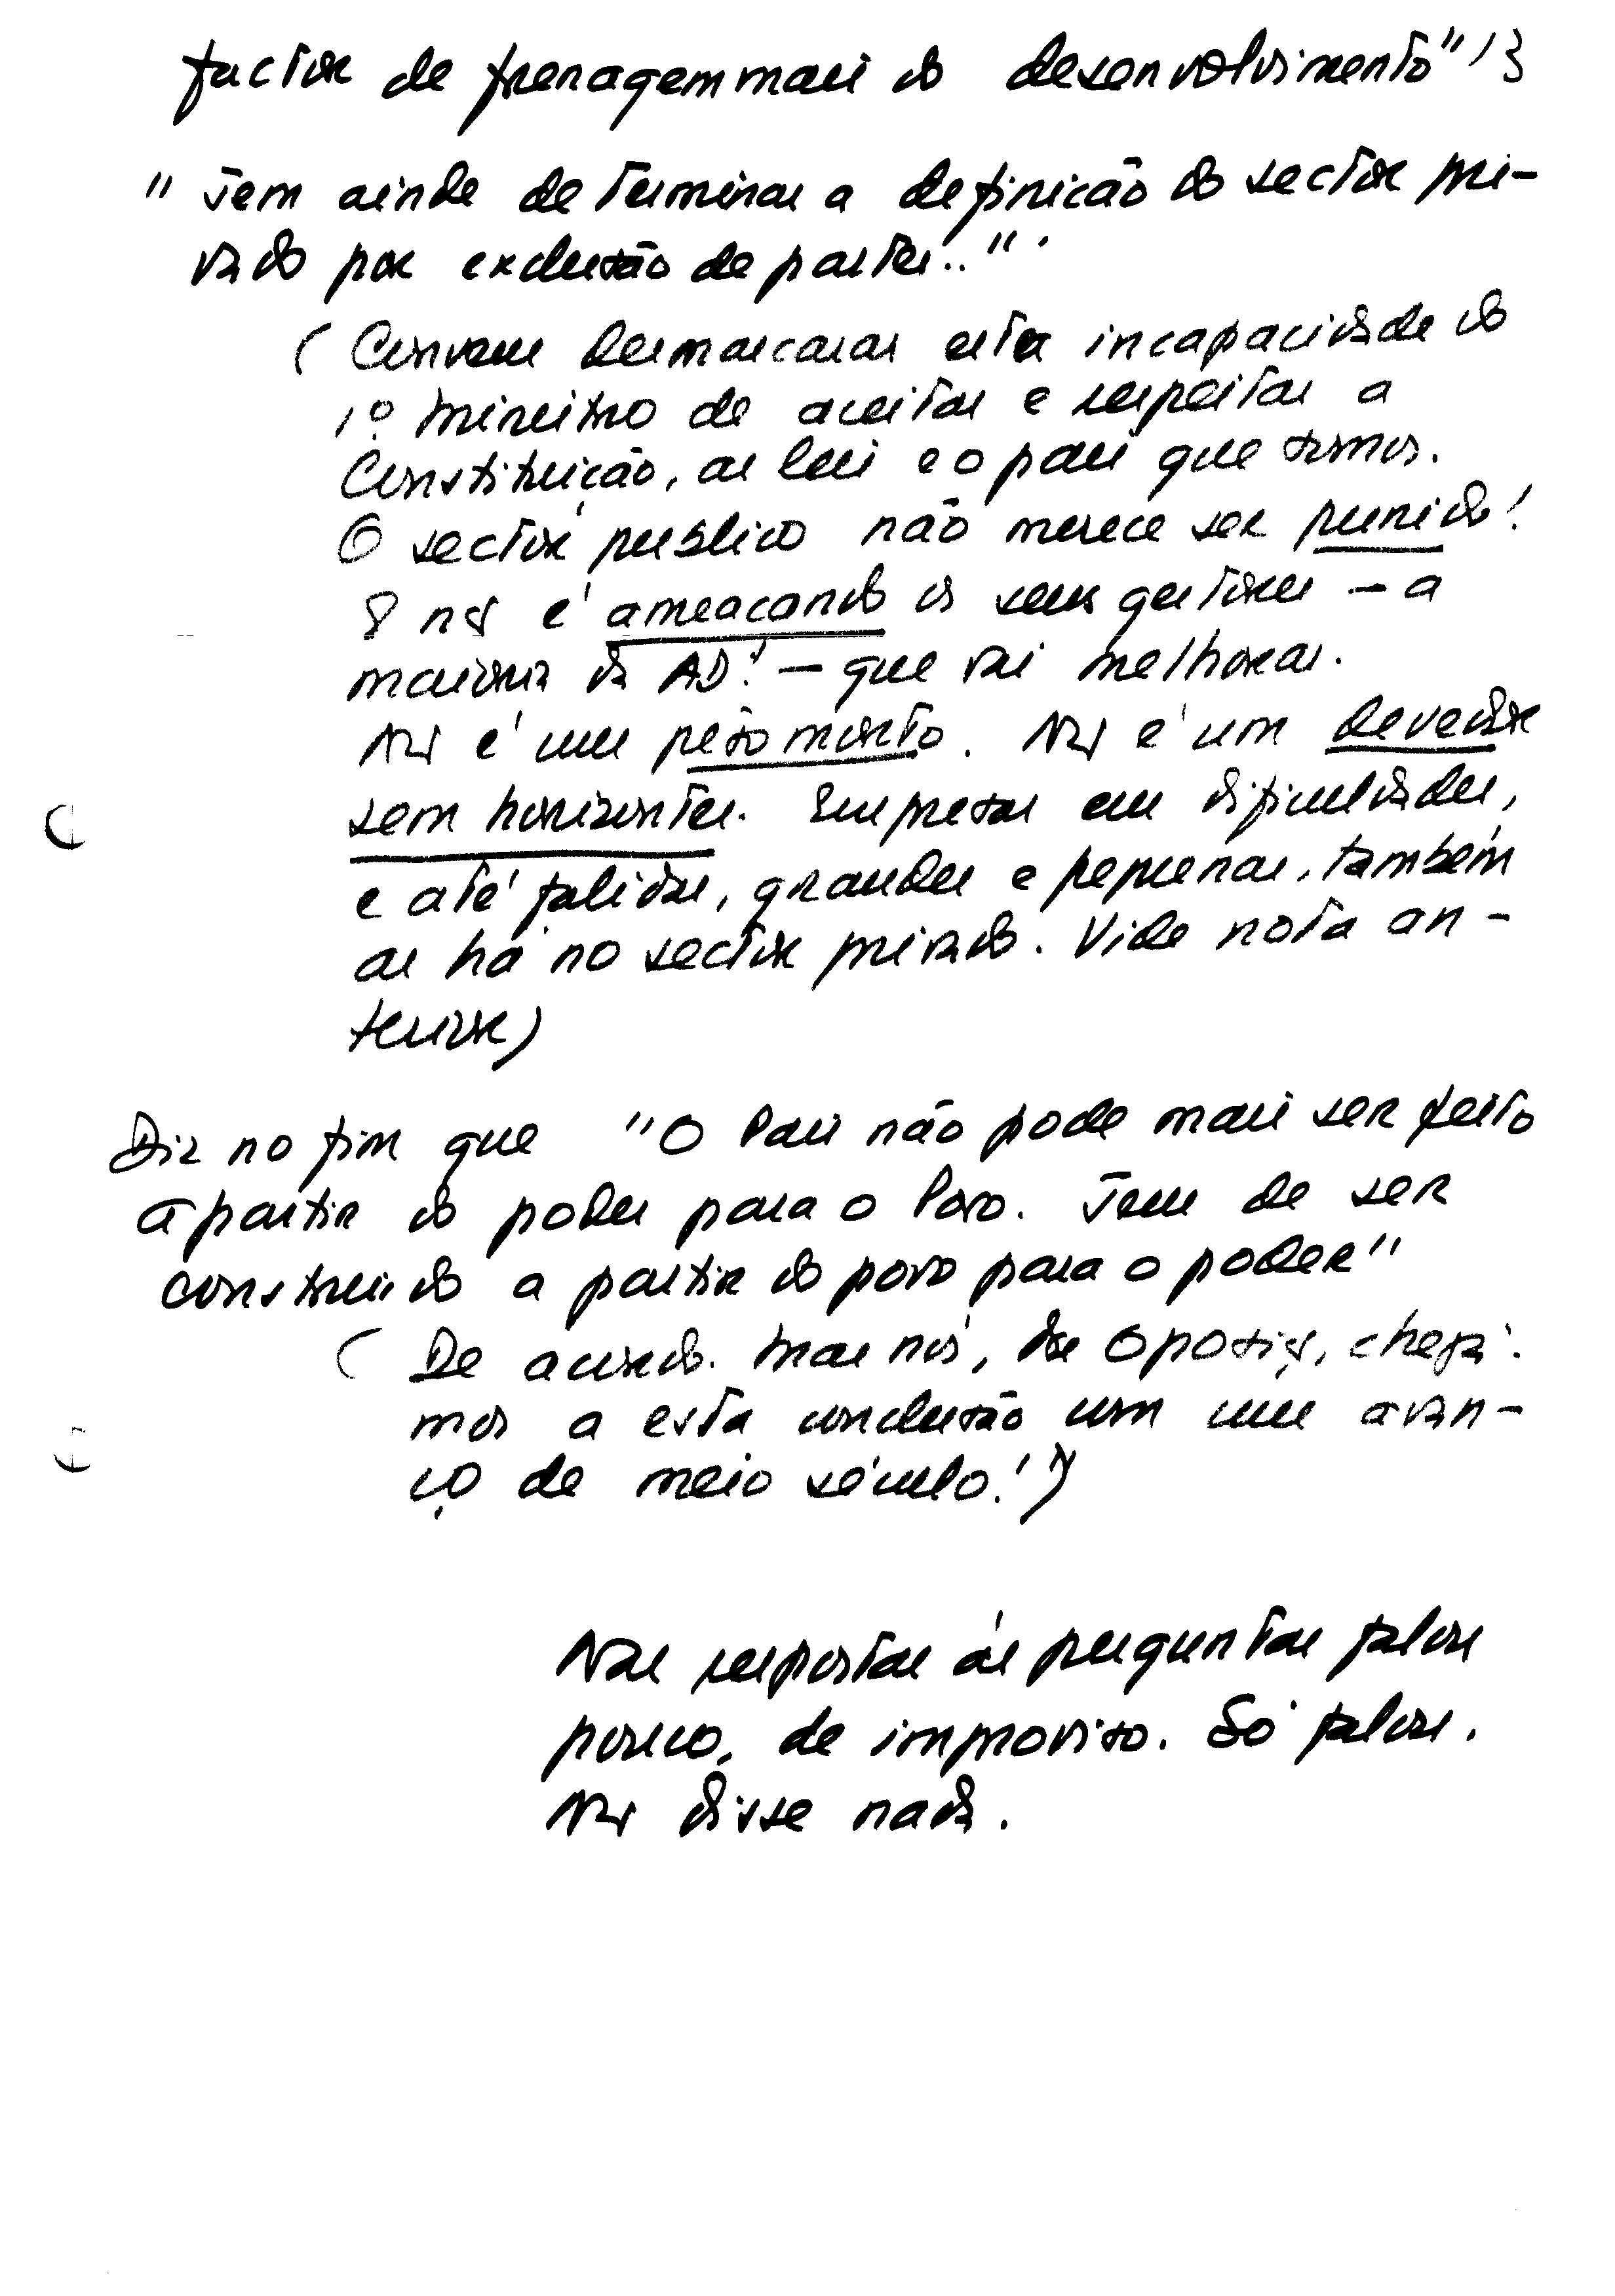 factor de frenagem mais do desenvolvimento" 13
"Tem ainda de terminar a definição do sector pri-
vado por exclusão de partes.."
(Convem desmascarar esta incapacidade do
1º Ministro de aceitar e respeitar a
Constituição, as leis e o país que temos.
O sector público não merece ser punido!
E não é ameaçando os seus gestores – a
maioria da AD! – que vai melhorar.
Não é um peso morto. Não é um devedor
sem horizontes. Empresas em dificuldades,
e até falidas, grandes e pequenas, também
as há no sector privado. Vide nota an-
terior)
Diz no fim que "O País não pode mais ser feito
a partir do poder para o Povo. Tem de ser
construido a partir do povo para o poder"
(De acordo. Mas nós, da Oposição, chegá-
mos a esta conclusão com um avan-
ço de meio século!")
Nas respostas às perguntas falou
pouco, de improviso. Só falou.
Não disse nada.